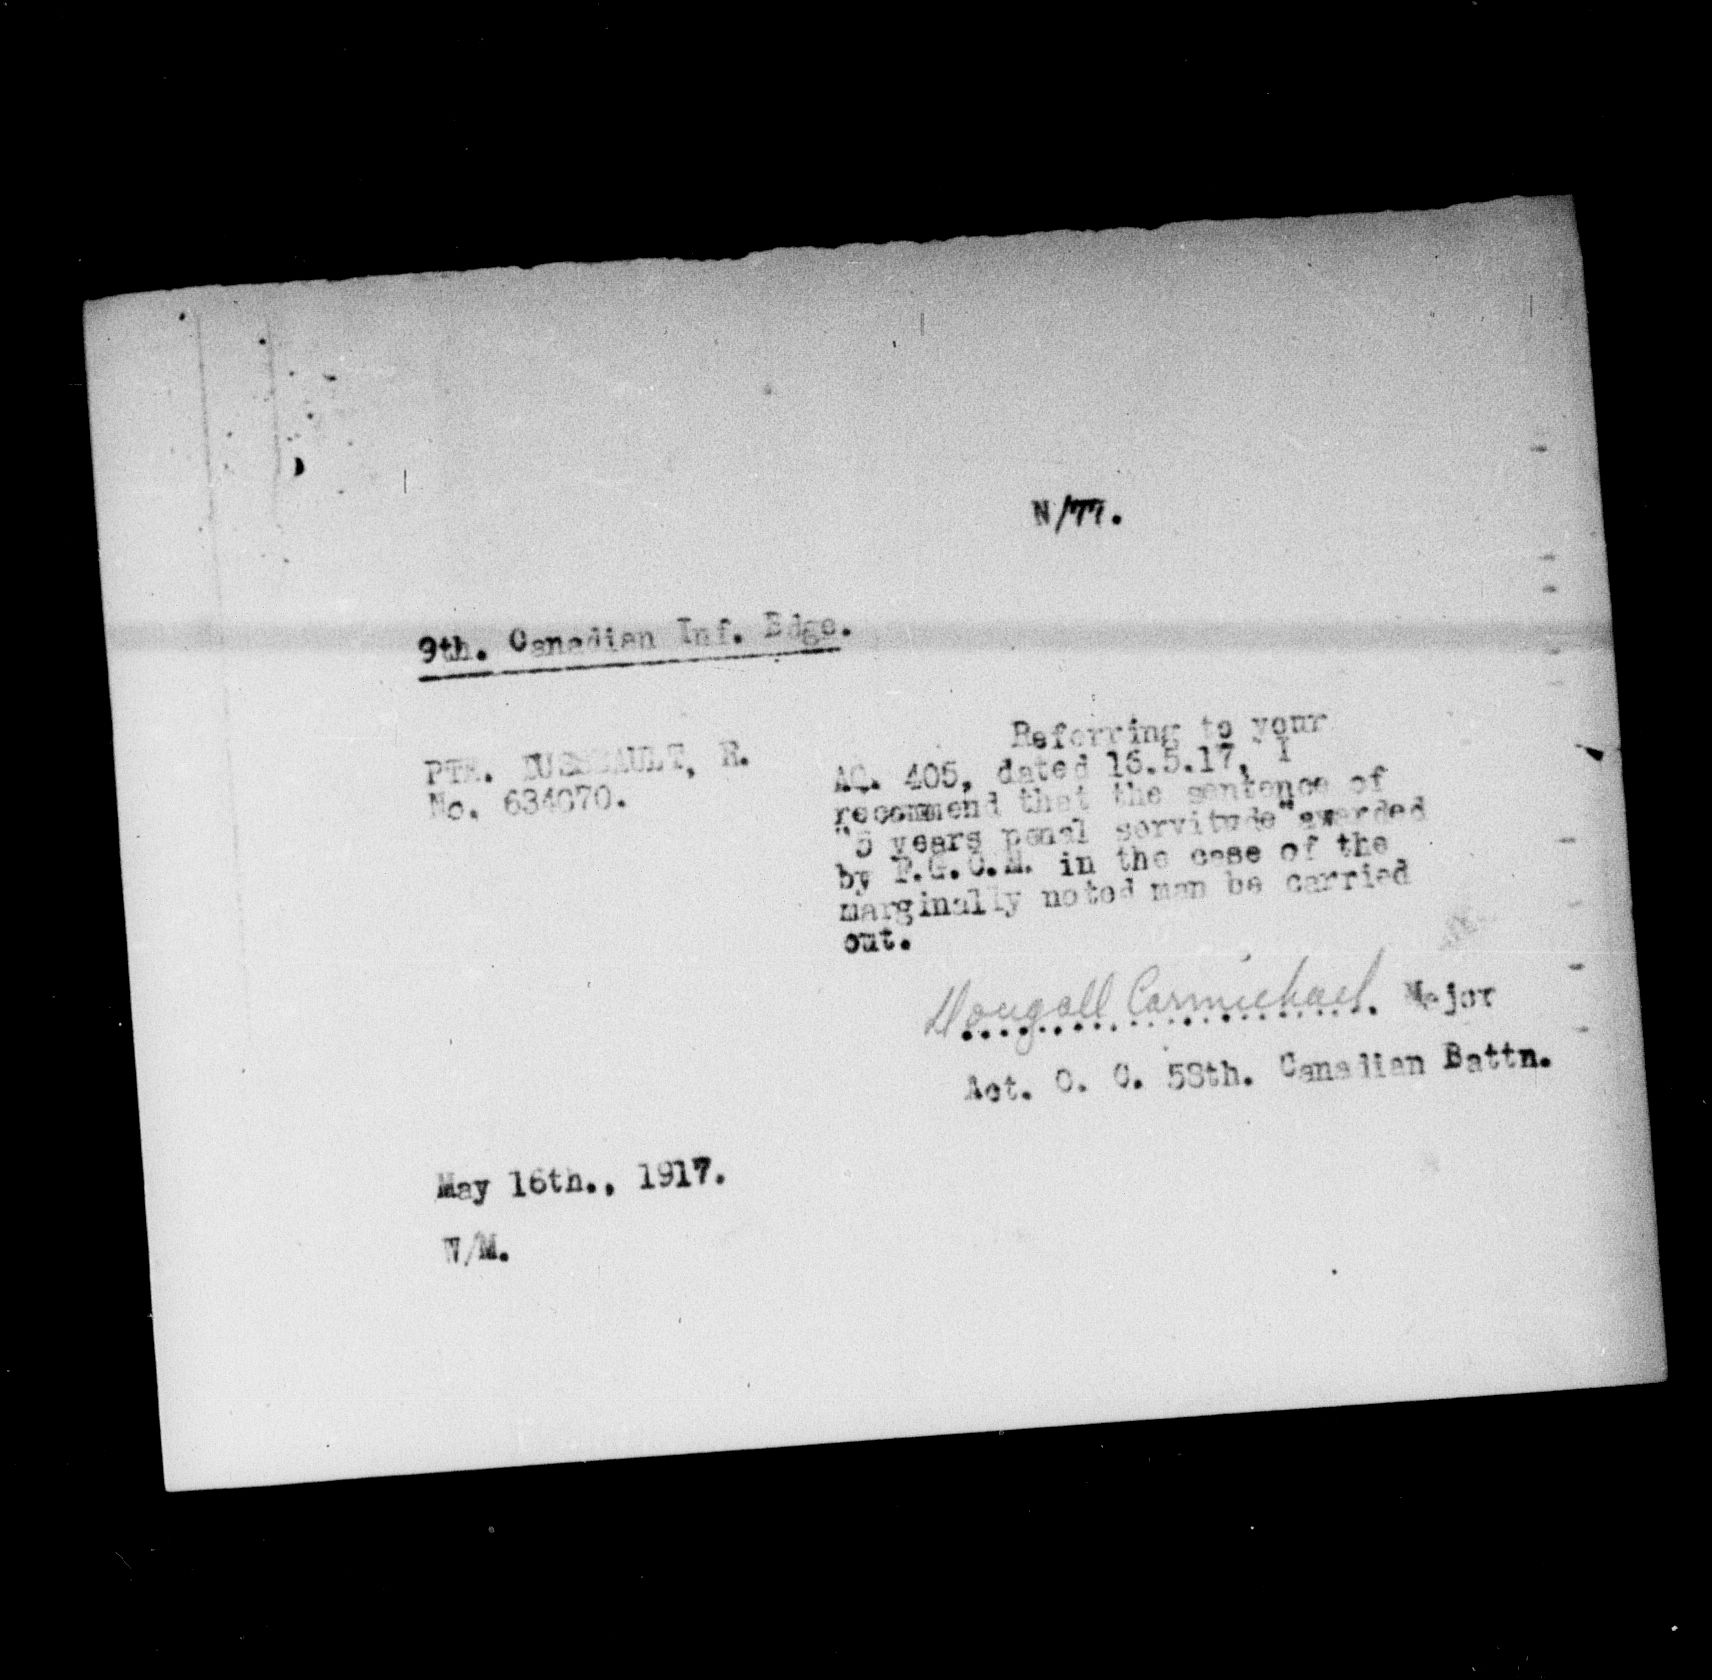 N/77.
9th. Canadian Inf. Bdge.
PTE. DUSSEAULT, R.
No. 634070.
Referring to your
AQ. 405, dated 16.5.17, I
recommend that the sentence of
"5 years penal servitude" awarded
by F.G.C.M. in the case of the
marginally noted man be carried
out.
Dougall Carmichael. Major
Act. O. C. 58th. Canadian Battn.
May 16th., 1917.
W/M.